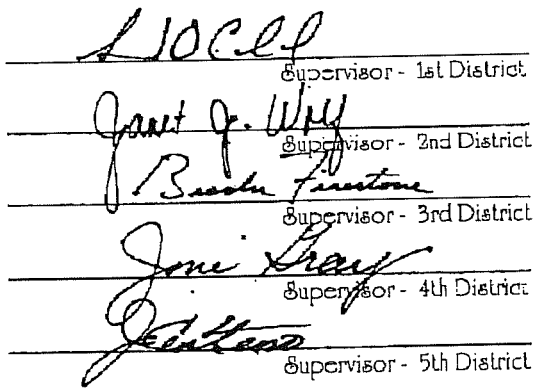 Supervisor - 1st District
Janet G. Wolf
Supervisor - 2nd District
Brooks Firestone
Supervisor - 3rd District
Joni Gray
Supervisor - 4th District
J Centeno
Supervisor - 5th District